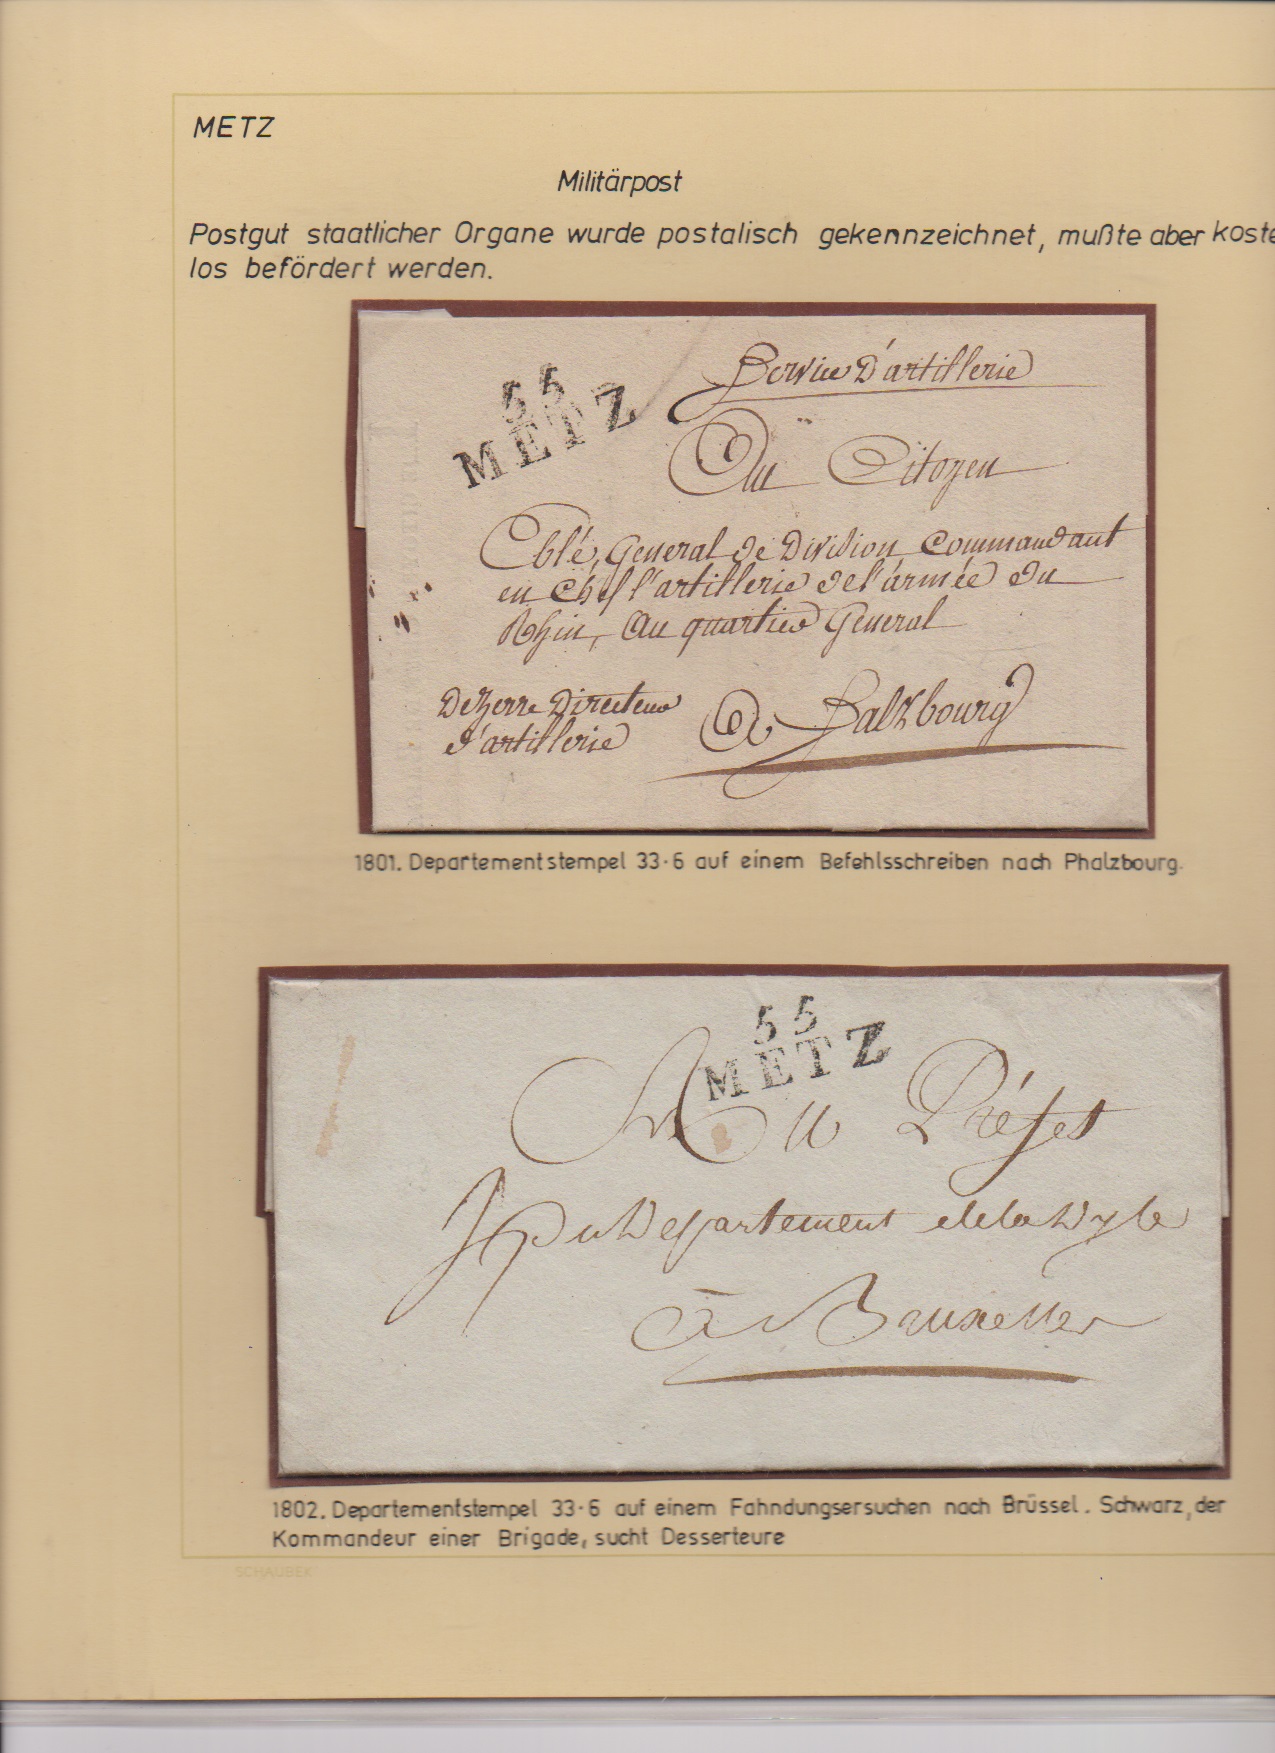 METZ
Militärpost
Postgut staatlicher Organe wurde postalisch gekennzeichnet, mußte aber koste
los befördert werden.
55
METZ
Service D'artillerie
Au Citoyen
Eblé, General de Division Commandant
en Chef l'artillerie de l'armée du
Rhin, Au quartier General
A Salzbourg
Directeur
d'artillerie
1801. Departementstempel 33·6 auf einem Befehlsschreiben nach Phalzbourg.
55
METZ
Au Préfet
Du Departement de la Dyle
à Bruxelles
1802. Departementstempel 33·6 auf einem Fahndungsersuchen nach Brüssel. Schwarz, der
Kommandeur einer Brigade, sucht Desserteure
SCHAUBEK